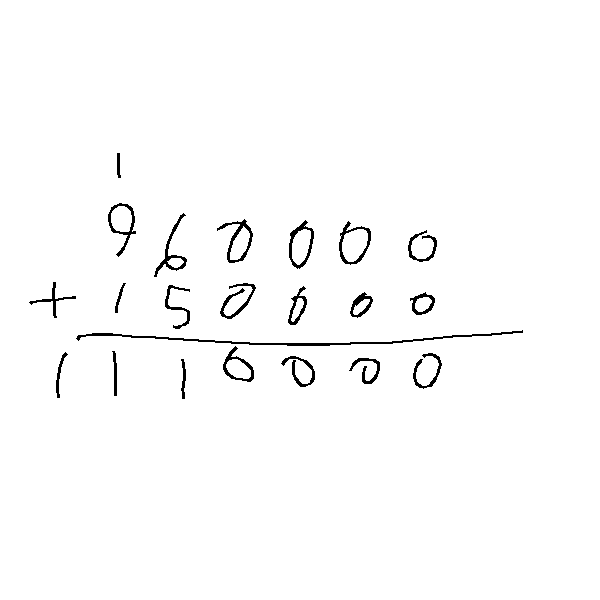 1
960000
+ 150000
1110000